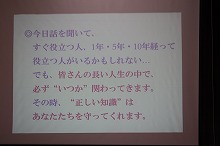 ◎今日話を聞いて、
すぐ役立つ人、1年・5年・10年経って
役立つ人がいるかもしれない…
でも、皆さんの長い人生の中で、
必ず“いつか”関わってきます。
その時、“正しい知識”は
あなたたちを守ってくれます。